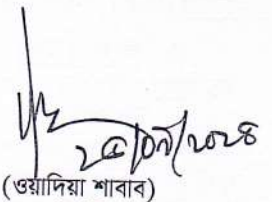 ২৫/০৭/২০২৪
(ওয়াদিয়া শাবাব)